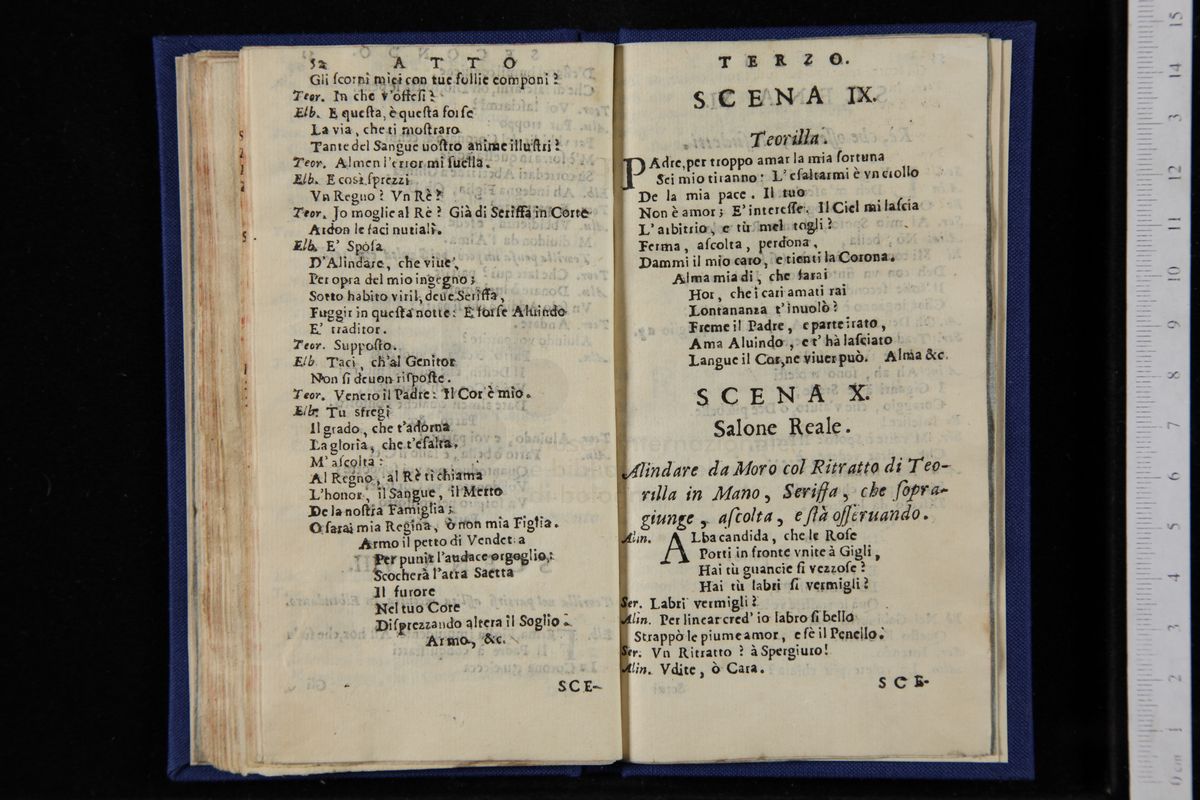 52 ATTO
Gli ſcorni miei con tue follie componi?
Teor. In che v'offeſi?
Elb. E queſta, è queſta forſe
La via, che ti moſtraro
Tante del Sangue uoſtro anime illuſtri?
Teor. Almen l'error mi ſuella.
Elb. E così ſprezzi
Vn Regno? Vn Rè?
Teor. Jo moglie al Rè? Già di Seriffa in Corte
Ardon le faci nutiali.
Elb. E' Spòſa
D'Alindare, che viue,
Per opra del mio ingegno;
Sotto habito viril, deue Seriffa,
Fuggir in queſta notte: E forſe Aluindo
E' traditor.
Teor. Suppoſto.
Elb. Taci, ch'al Genitor
Non ſi deuon riſpoſte.
Teor. Venero il Padre: Il Cor è mio.
Elb. Tu sfregi
Il grado, che t'adorna
La gloria, che t'eſalta.
M'aſcolta:
Al Regno, al Rè ti chiama
L'honor, il Sangue, il Merto
De la noſtra Famiglia;
O ſarai mia Regina, ò non mia Figlia.
Armo il petto di Vendetta
Per punir l'audace orgoglio;
Scocherà l'atra Saetta
Il furore
Nel tuo Core
Diſprezzando altera il Soglio.
Armo, &c.
SCE-
TERZO.
SCENA IX.
Teorilla.
PAdre, per troppo amar la mia fortuna
Sei mio tiranno: L'eſaltarmi è vn crollo
De la mia pace. Il tuo
Non è amor; E' intereſſe. Il Ciel mi laſcia
L'arbitrio, e tù mel togli?
Ferma, aſcolta, perdona,
Dammi il mio caro, e tienti la Corona.
Alma mia di, che farai
Hor, che i cari amati rai
Lontananza t'inuolò?
Freme il Padre, e parte irato,
Ama Aluindo, e t'hà laſciato
Langue il Cor, ne viuer può. Alma &c.
SCENA X.
Salone Reale.
Alindare da Moro col Ritratto di Teo-
rilla in Mano, Seriffa, che ſopra-
giunge, aſcolta, e ſtà oſſeruando.
Alin. ALba candida, che le Roſe
Porti in fronte vnite à Gigli,
Hai tù guancie ſi vezzoſe?
Hai tù labri ſi vermigli?
Ser. Labri vermigli?
Alin. Per linear cred'io labro ſi bello
Strappò le piume amor, e fè il Penello.
Ser. Vn Ritratto? à Spergiuro!
Alin. Vdite, ò Cara.
SCE-